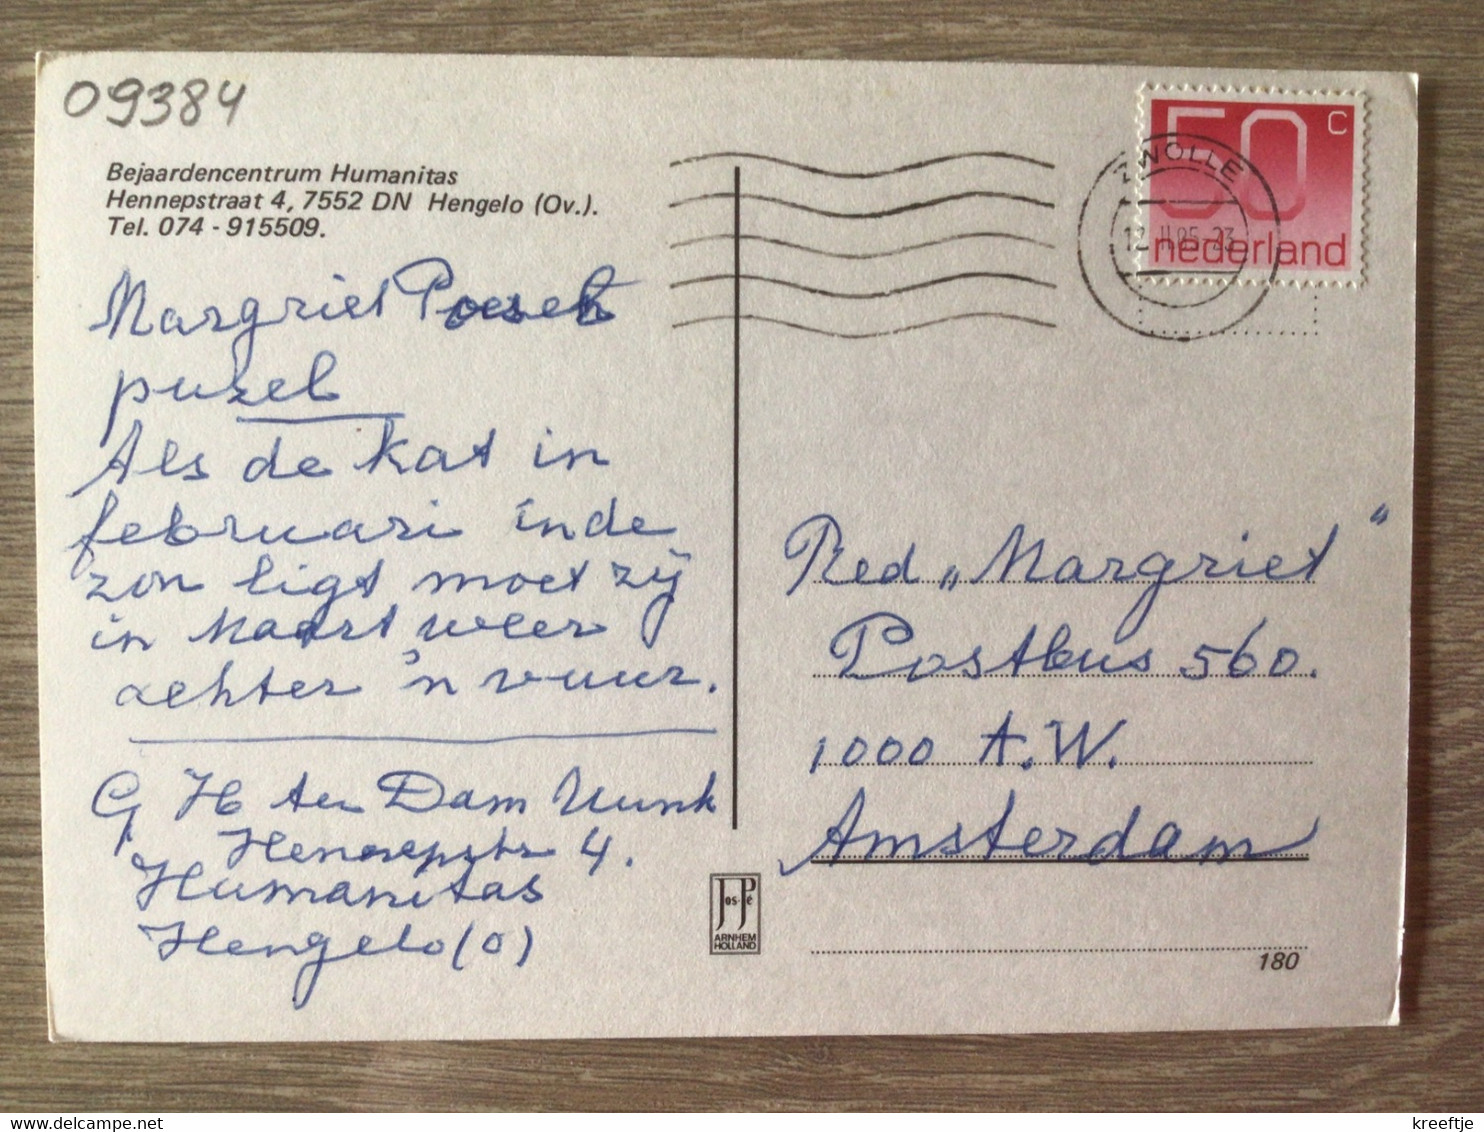 09384
Bejaardencentrum Humanitas
Hennepstraat 4, 7552 DN Hengelo (Ov.).
Tel. 074 - 915509.
Margriet Poesen
puzel
Als de kat in
februari in de
zon ligt moet zij
in Maart weer
achter 'n vuur.
G H ten Dam Nunk
Hennepstr 4.
Humanitas
Hengelo (O)
50 C
nederland
ZWOLLE
Red „Margriet"
Postbus 560.
1000 A.W.
Amsterdam
Jos-Pé
ARNHEM
HOLLAND
180
delcampe.net
kreeftje